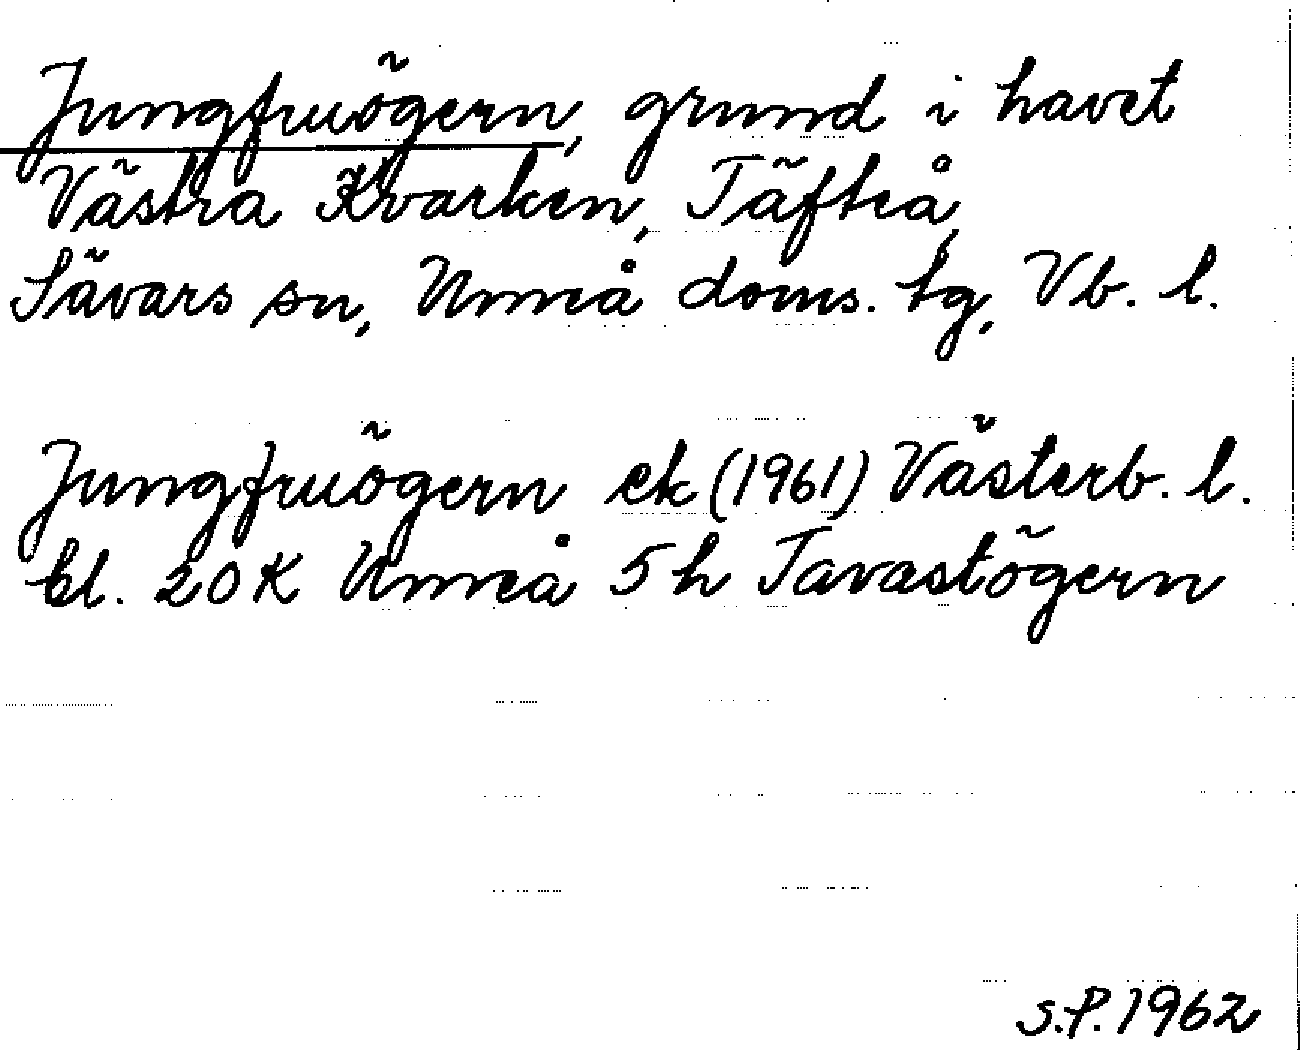 Jungfruögern, grund i havet
Västra Kvarken, Täfteå,
Sävars sn, Umeå doms. tg, Vb. l.
Jungfruögern ek (1961) Västerb. l.
bl. 20 K Umeå 5 h Tavastögern
S.P. 1962